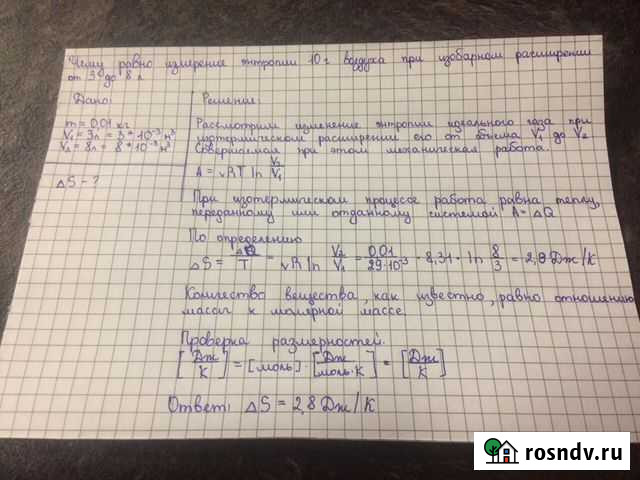 Чему равно измерение энтропии 10 г воздуха при изобарном расширении
от 3 до 8 л
Дано:
m = 0,01 кг
V₁ = 3л = 3 * 10⁻³ м³
V₂ = 8л = 8 * 10⁻³ м³
ΔS - ?
Решение:
Рассмотрим изменение энтропии идеального газа при
изотермическом расширении его от объема V₁ до V₂
Совершаемая при этом механическая работа.
A = νRT ln V₂/V₁
При изотермическом процессе работа равна теплу,
переданному или отданному системой A = ΔQ
По определению
ΔS = ΔQ/T = νR ln V₂/V₁ = 0,01/29·10⁻³ · 8,31 · ln 8/3 = 2,8 Дж/К
Количество вещества, как известно, равно отношению
массы к молярной массе.
Проверка размерностей.
[Дж/К] = [моль] · [Дж/моль·К] = [Дж/К]
Ответ: ΔS = 2,8 Дж/К
rosndv.ru